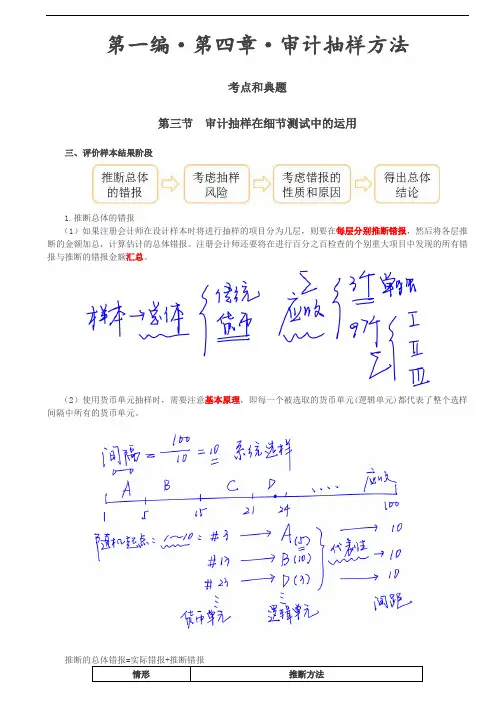 第一编·第四章·审计抽样方法
考点和典题
第三节 审计抽样在细节测试中的运用
三、评价样本结果阶段
推断总体的错报
考虑抽样风险
考虑错报的性质和原因
得出总体结论
1.推断总体的错报
(1)如果注册会计师在设计样本时将进行抽样的项目分为几层,则要在每层分别推断错报,然后将各层推
断的金额加总,计算估计的总体错报。注册会计师还要将在进行百分之百检查的个别重大项目中发现的所有错
报与推断的错报金额汇总。
样本→总体 传统 货币
Σ 应收 3个 97个 Σ Ⅰ Ⅱ Ⅲ
(2)使用货币单元抽样时,需要注意基本原理,即每一个被选取的货币单元(逻辑单元)都代表了整个选样
间隔中所有的货币单元。
间隔=100/10=10 系统选样
A B C D .... 应收
1 5 15 21 24 100
随机起点:1~10:#3 → A(5) → 10
#13 → B(10) 代表性 → 10
#23 → D(3) → 10
货币单元 逻辑单元 间距
推断的总体错报=实际错报+推断错报
情形 推断方法